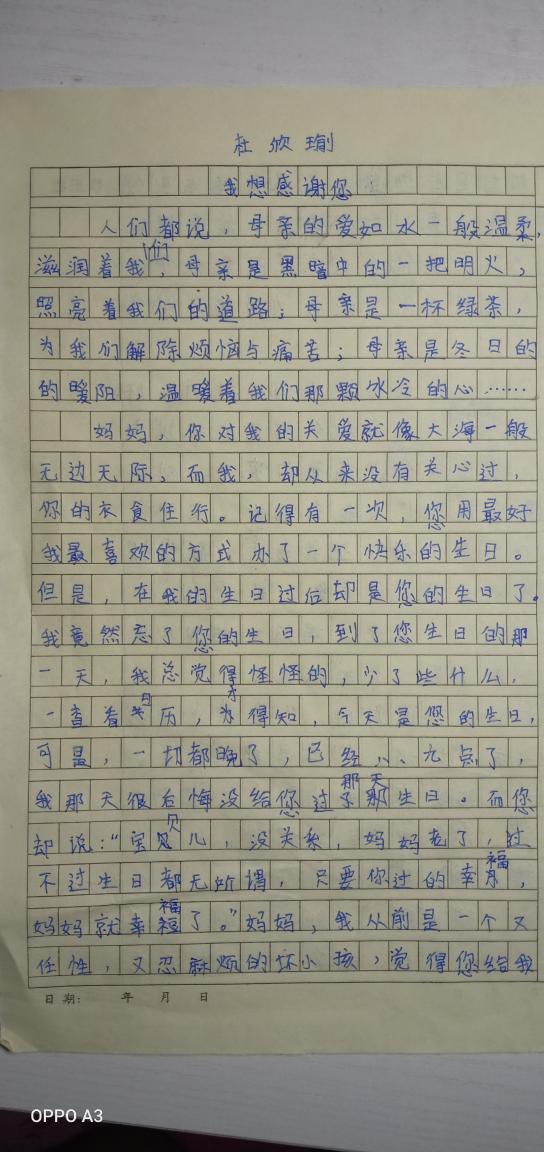 杜欣瑜
我想感谢您
人们都说，母亲的爱如水一般温柔，
滋润着我们，母亲是黑暗中的一把明火，
照亮着我们的道路；母亲是一杯绿茶，
为我们解除烦恼与痛苦；母亲是冬日的
的暖阳，温暖着我们那颗冰冷的心……
妈妈，你对我的关爱就像大海一般
无边无际，而我，却从来没有关心过，
你的衣食住行。记得有一次，您用最好
我最喜欢的方式办了一个快乐的生日。
但是，在我的生日过后却是您的生日了。
我竟然忘了您的生日，到了您生日的那
一天，我总觉得怪怪的，少了些什么，
一查看日历，才得知，今天是您的生日，
可是，一切都晚了，已经八、九点了，
我那天很后悔没给您过那天生日。而您
却说：“宝贝儿，没关系，妈妈老了，过
不过生日都无所谓，只要你过的幸福，
妈妈就幸福了。”妈妈，我从前是一个又
任性，又忍麻烦的坏小孩，觉得您给我
日期： 年 月 日
OPPO A3